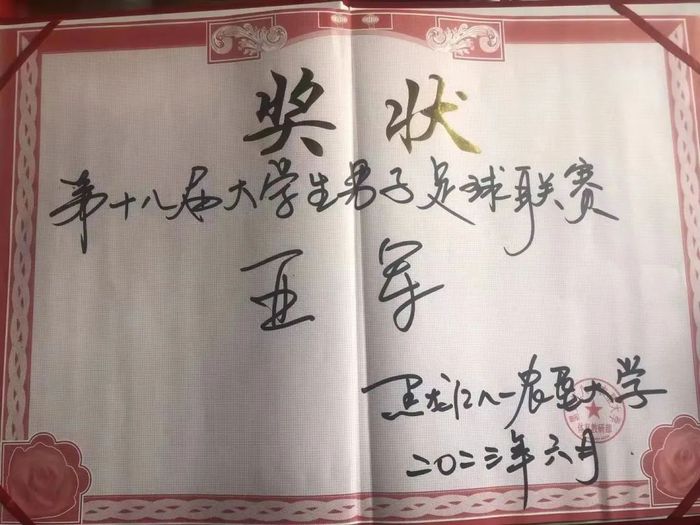 奖状
第十八届大学生男子足球联赛
亚军
黑龙江八一农垦大学
二〇二三年六月
体育教研部